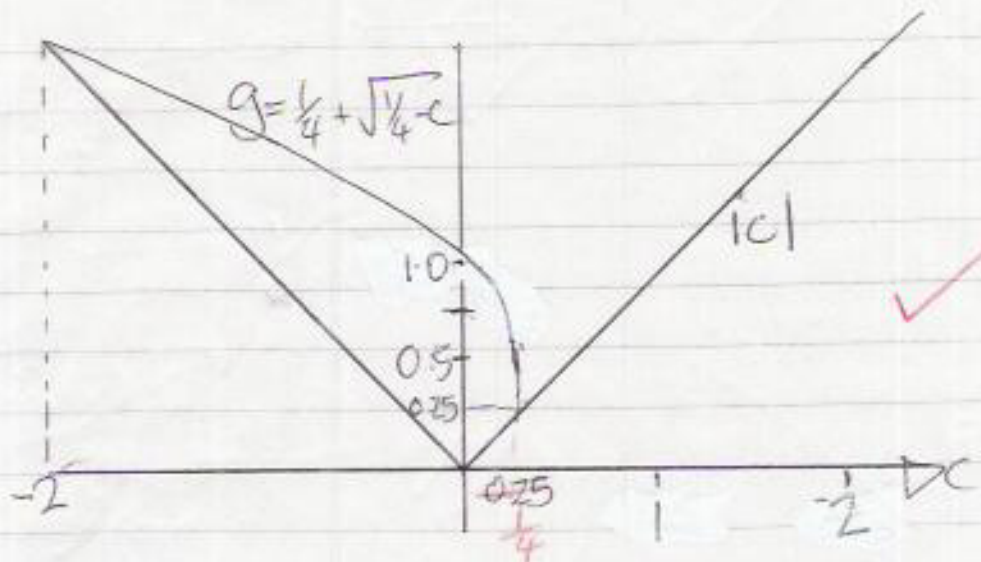 g=1/4+√1/4-c
|c|
1.0
0.5
0.25
-2
0.25
1
-2
c
1/4